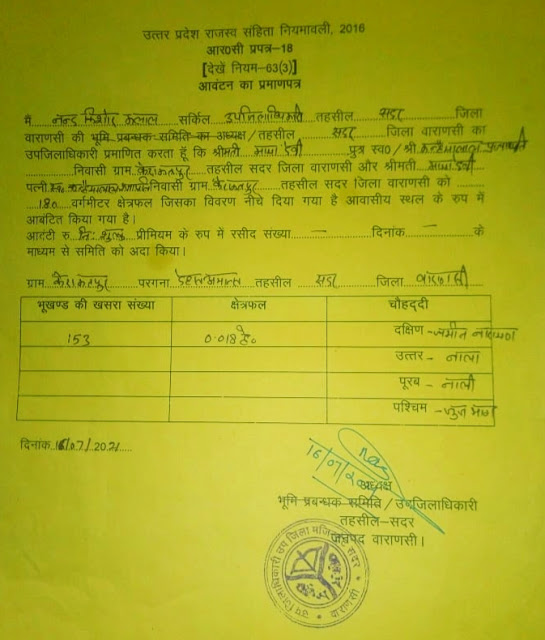 उत्तर प्रदेश राजस्व संहिता नियमावली, 2016
आर0सी प्रपत्र–18
[देखें नियम–63(3)]
आवंटन का प्रमाणपत्र
मैं नन्द किशोर कलाल सर्किल उपजिलाधिकारी तहसील सदर जिला
वाराणसी की भूमि प्रबन्धक समिति का अध्यक्ष/तहसील सदर जिला वाराणसी का
उपजिलाधिकारी प्रमाणित करता हूँ कि श्रीमती माया देवी पुत्र स्व0/श्री
निवासी ग्राम कैराकतपुर तहसील सदर जिला वाराणसी और श्रीमती माया देवी
पत्नी स्व. निवासी ग्राम कैराकतपुर तहसील सदर जिला वाराणसी को
180 वर्गमीटर क्षेत्रफल जिसका विवरण नीचे दिया गया है आवासीय स्थल के रुप में
आबंटित किया गया है।
आवंटी रु. निःशुल्क प्रीमियम के रुप में रसीद संख्या – दिनांक – के
माध्यम से समिति को अदा किया।
ग्राम कैराकतपुर परगना देहात अमानत तहसील सदर जिला वाराणसी
भूखण्ड की खसरा संख्या क्षेत्रफल चौहद्दी
153 0.018 हे० दक्षिण – जमीन नारायण
उत्तर – नाला
पूरब – नाली
पश्चिम –
दिनांक 16/07/2021
16/07/2021
अध्यक्ष
भूमि प्रबन्धक समिति/उपजिलाधिकारी
तहसील–सदर
जनपद वाराणसी।
उप जिलाधिकारी उप जिला मजिस्ट्रेट सदर वाराणसी